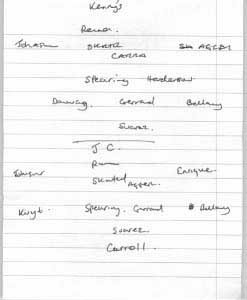 Kenny's
Reina.
Johnson SKRTEL AGGER
CARRA
Spearing Henderson
Downing Gerrard Bellamy
Suarez.
J C.
Enrique
Skrtel Agger.
Kuyt Spearing. Gerrard Bellamy
Suarez
Carroll.